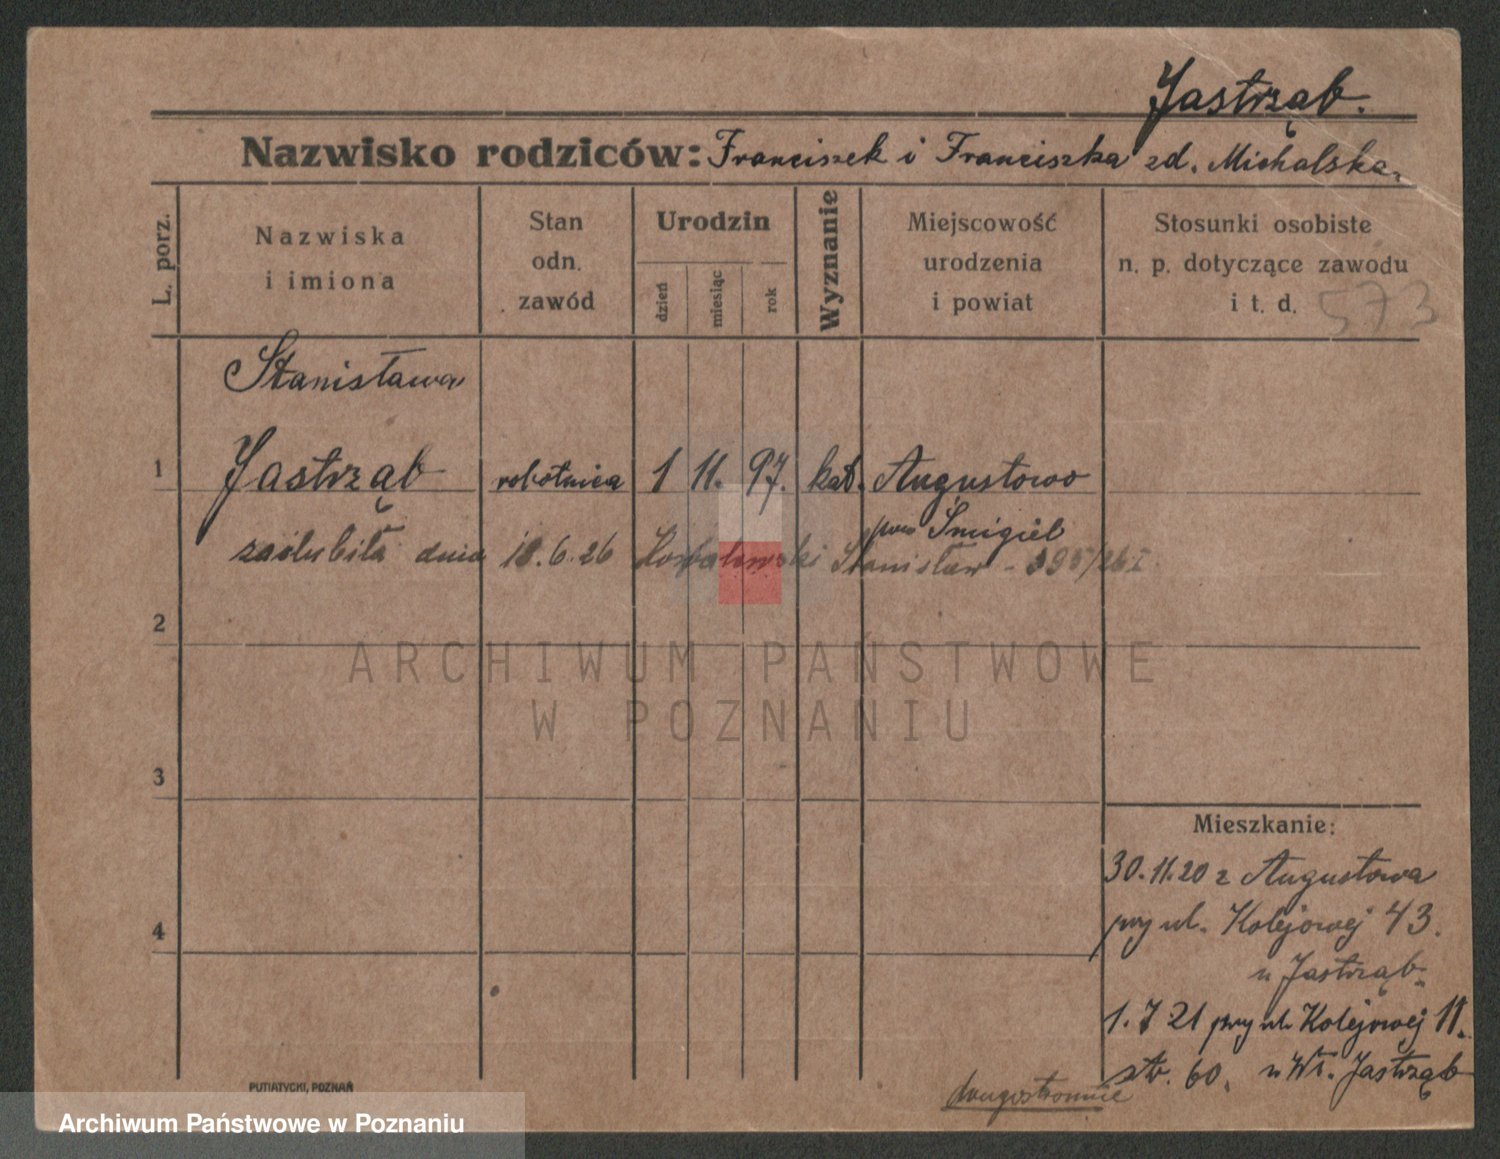 Jastrząb.
Nazwisko rodziców: Franciszek i Franciszka zd. Michalska.
L. porz.
Nazwiska
i imiona
Stan
odn.
zawód
Urodzin
dzień
miesiąc
rok
Wyznanie
Miejscowość
urodzenia
i powiat
Stosunki osobiste
n. p. dotyczące zawodu
i t. d. 573
Stanisława
1 Jastrząb robotnica 1 11. 97. kat. Augustowo
pow Śmigiel
zaślubiła dnia 18.6.26 Kowalewski Stanisław - 395/26 I
2
3
4
Mieszkanie:
30.11.20 z Augustowa
przy ul. Kolejowej 43.
u Jastrząb.
1. 7 21 przy ul. Kolejowej 11.
str. 60. u Wł. Jastrząb
drugostronnie
PUTIATYCKI, POZNAŃ
ARCHIWUM PAŃSTWOWE
W POZNANIU
Archiwum Państwowe w Poznaniu